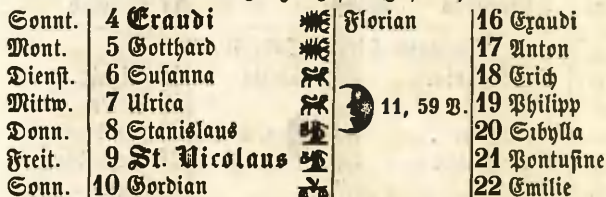 Sonnt. 4 Exaudi Florian 16 Exaudi
Mont. 5 Gotthard 17 Anton
Dienſt. 6 Suſanna 18 Erich
Mittw. 7 Ulrica 11, 59 V. 19 Philipp
Donn. 8 Stanislaus 20 Sibylla
Freit. 9 St. Nicolaus 21 Pontuſine
Sonn. 10 Gordian 22 Emilie